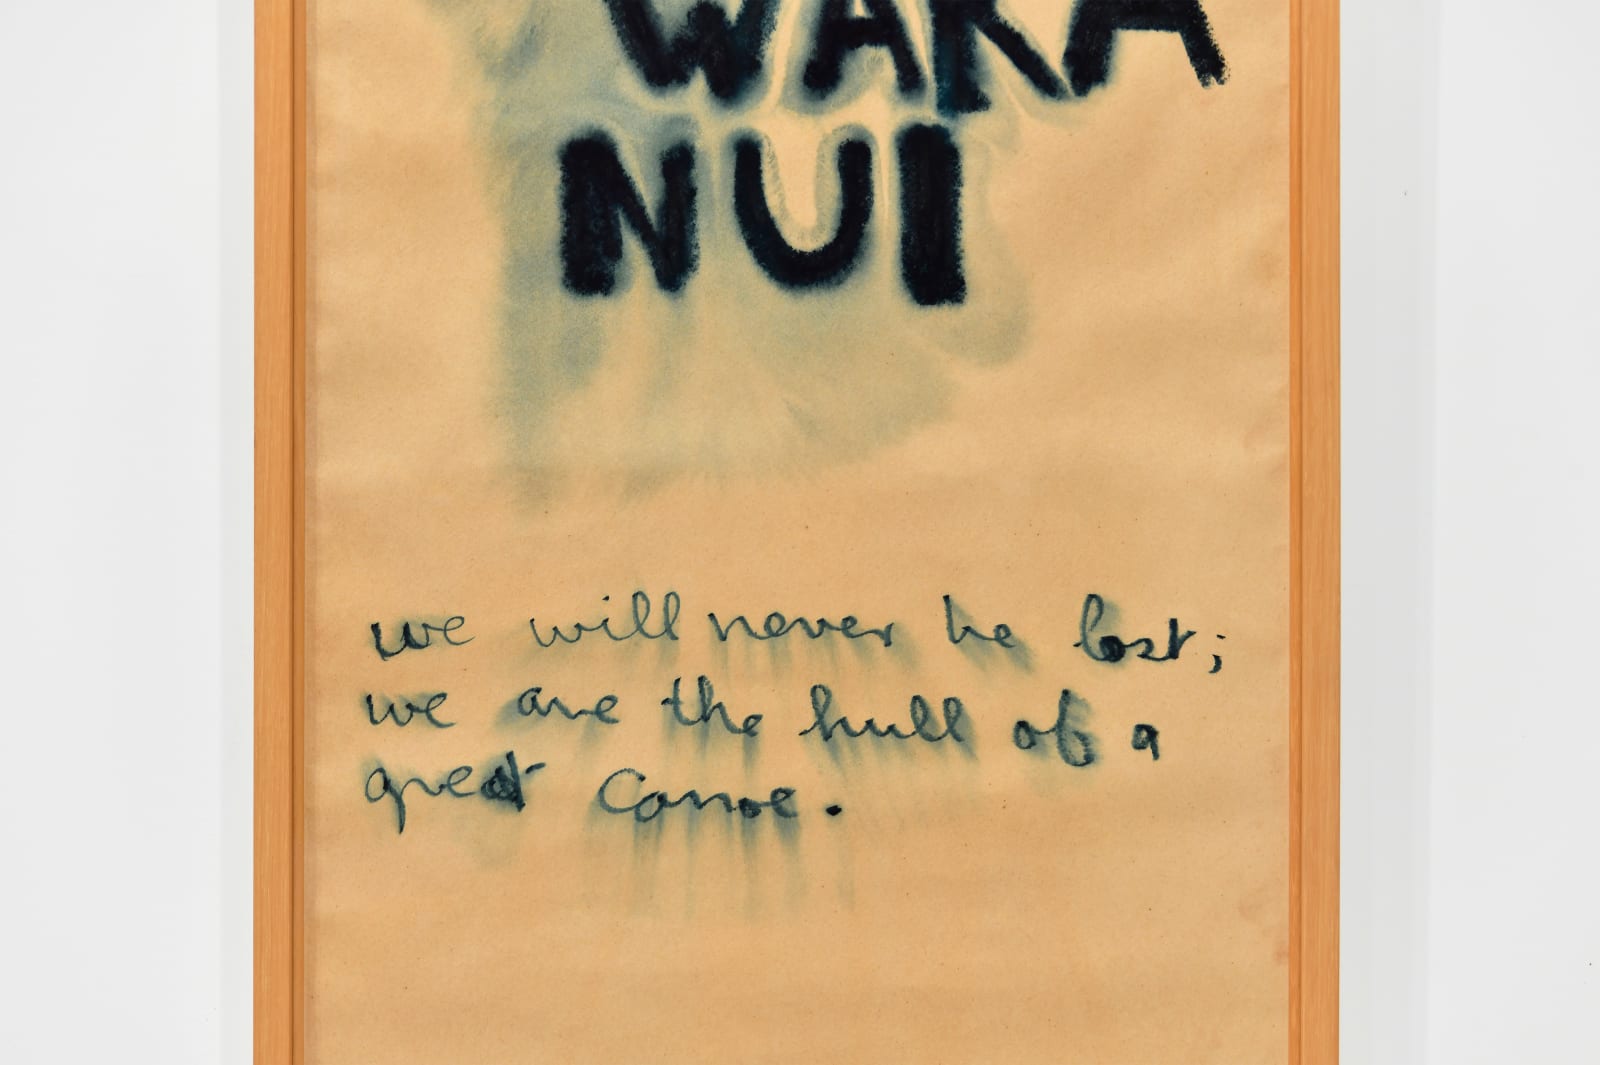 WAKA
NUI
we will never be lost;
we are the hull of a
great canoe.